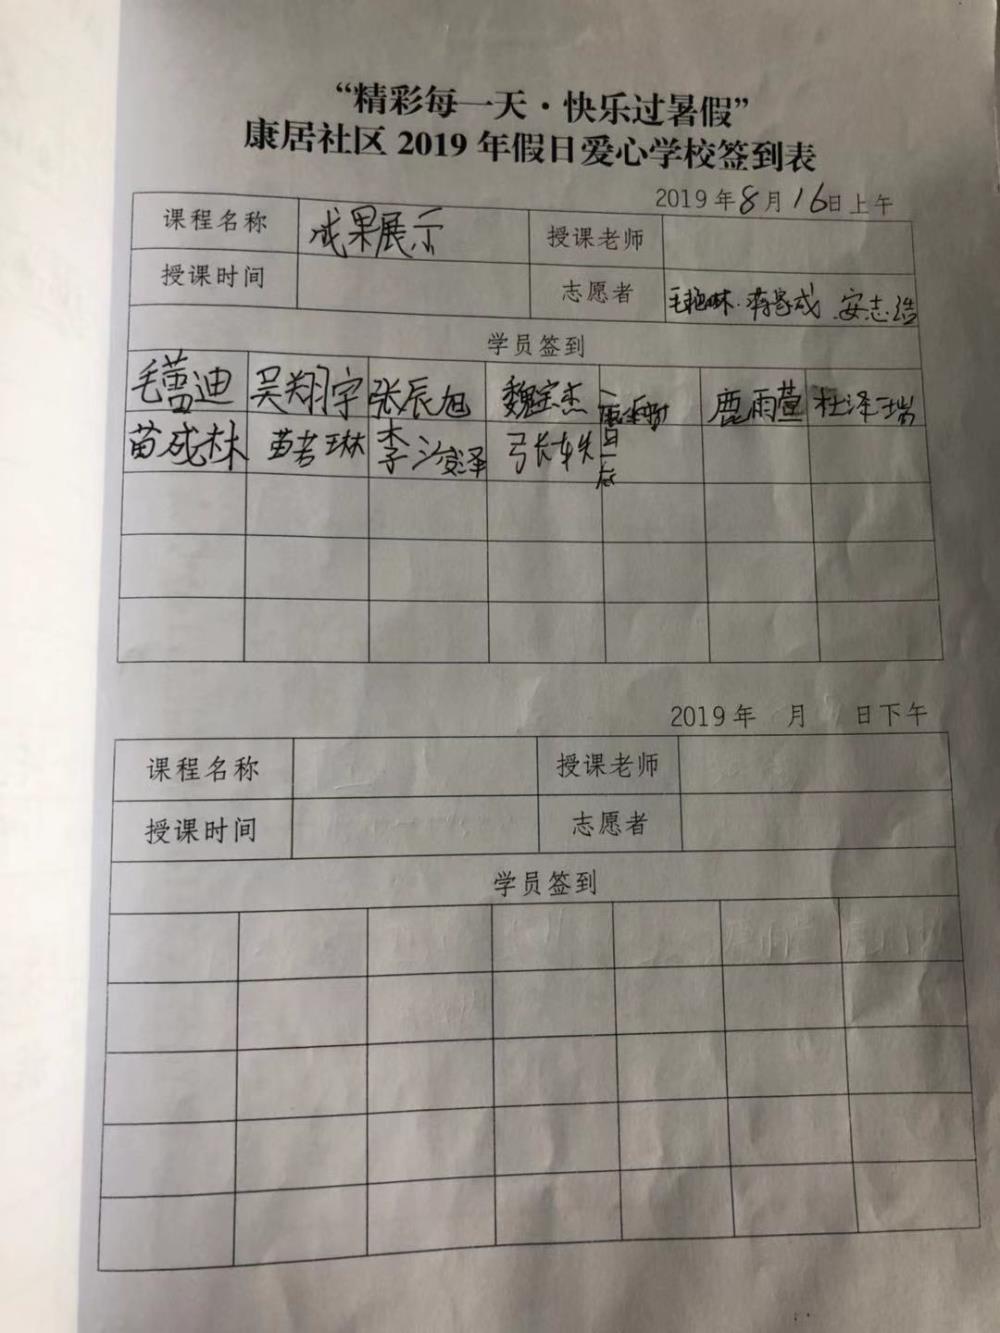 “精彩每一天·快乐过暑假”
康居社区 2019 年假日爱心学校签到表
2019 年 8 月 16 日上午
课程名称 成果展示 授课老师
授课时间 志愿者 安志浩
学员签到
毛蕾迪 吴翔宇 张辰旭 魏宝杰 鹿雨萱 杜泽瑞
苗成林 苗若琳 李
2019 年 月 日下午
课程名称 授课老师
授课时间 志愿者
学员签到